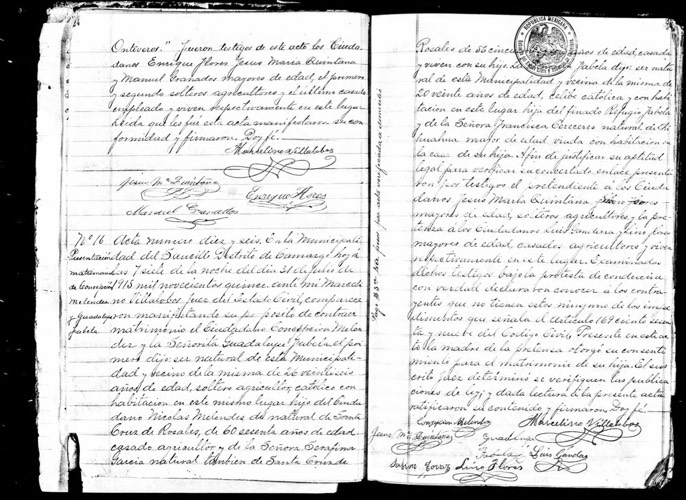 Onteveros." Fueron testigos de este acto los Ciuda-
danos Enrique Flores Jesus Maria Quintana
y Manuel Granados mayores de edad, el primero
y segundo solteros agricultores y el ultimo casado
empleado y viven respectivamente en este lugar.
Leida que les fué esta acta manifestaron su con-
formidad y firmaron. Doy fé.
Marcelino Villalobos
Jesus Ma Quintana
Enrique Flores
Manuel Granados
No 16. Acta numero diez y seis. En la Municipali-
Presentacion dad del Distrito de Camargo hoy á
matrimonial las 7 siete de la noche del dia 31 de Julio de
de Concepcion 1915 mil novecientos quince, ante mi Marceli-
Melendez no Villalobos Juez del Estado Civil, comparecie-
y Guadalupe ron manifestando su proposito de contraer
Fabela. matrimonio el Ciudadano Concepcion Melen-
dez y la Señorita Guadalupe Fabela, el pri-
mero dijo: ser natural de esta Municipali-
dad y vecino de la misma de 26 veintiseis
años de edad, soltero agricultor, catolico con
habitacion en este mismo lugar hijo del Ciuda-
dano Nicolas Melendes natural de Santa
Cruz de Rosales, de 60 sesenta años de edad
casado agricultor y de la Señora Serafina
Garcia natural tambien de Santa Cruz de
REPUBLICA MEXICANA
Rosales de 55 cincuenta años de edad, casada
y viven con su hijo Fabela dijo: ser natu-
ral de esta Municipalidad y vecina de la misma de
20 veinte años de edad, celibe católica y con habi-
tacion en este lugar hija del finado Refugio Fabela
y de la Señora Francisca Cereceres natural de Chi-
huahua mayor de edad viuda con habitacion en
la casa de su hija. A fin de justificar su aptitud
legal para verificar su concertado enlace presenta-
ron por testigos el pretendiente á los Ciuda-
danos Jesus María Quintana
mayores de edad, solteros agricultores y la pre-
tensa á los Ciudadanos Luis y Lino Flores
mayores de edad casados agricultores y viven
respectivamente en este lugar. Examinados
dichos testigos bajo la protesta de conducirse
con verdad declararon conocer á los contra-
yentes que no tienen estos ninguno de los impe-
dimentos que señala el articulo 169 ciento sesen-
ta y nueve del Codigo Civil. Presente en este ac-
to la madre de la pretensa otorgó su consenti-
miento para el matrimonio de su hija. El sus-
crito Juez determinó se verifiquen las publica-
ciones de ley; y dada lectura á la presente acta
ratificaron su contenido y firmaron. Doy fé.
Concepcion Melendez Marcelino Villalobos
Jesus Ma Quintana Guadalupe
Fabela Luis
Lino Flores